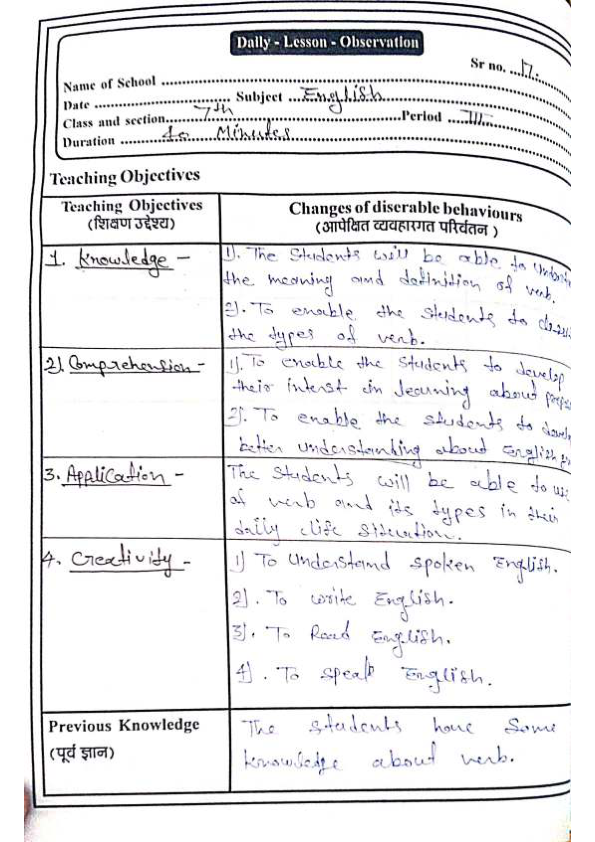 Daily - Lesson - Observation
Sr no. ...17.
Name of School
Date ........ Subject ...English
Class and section......7th........Period ...III.
Duration ........40 Minutes
Teaching Objectives
Teaching Objectives
(शिक्षण उद्देश्य)
Changes of diserable behaviours
(आपेक्षित व्यवहारगत परिवर्तन )
1. Knowledge -
1). The Students will be able to
the meaning and definition of verb.
2). To enable the students to
the types of verb.
2). Comprehension -
1). To enable the Students to develop
their interst in learning about
2). To enable the students to
better understanding about English
3. Application -
The Students will be able to
of verb and its types in their
daily life situation.
4. Creativity -
1) To Understand spoken English.
2). To write English.
3). To Read English.
4). To speak English.
Previous Knowledge
(पूर्व ज्ञान)
The students have Some
knowledge about verb.